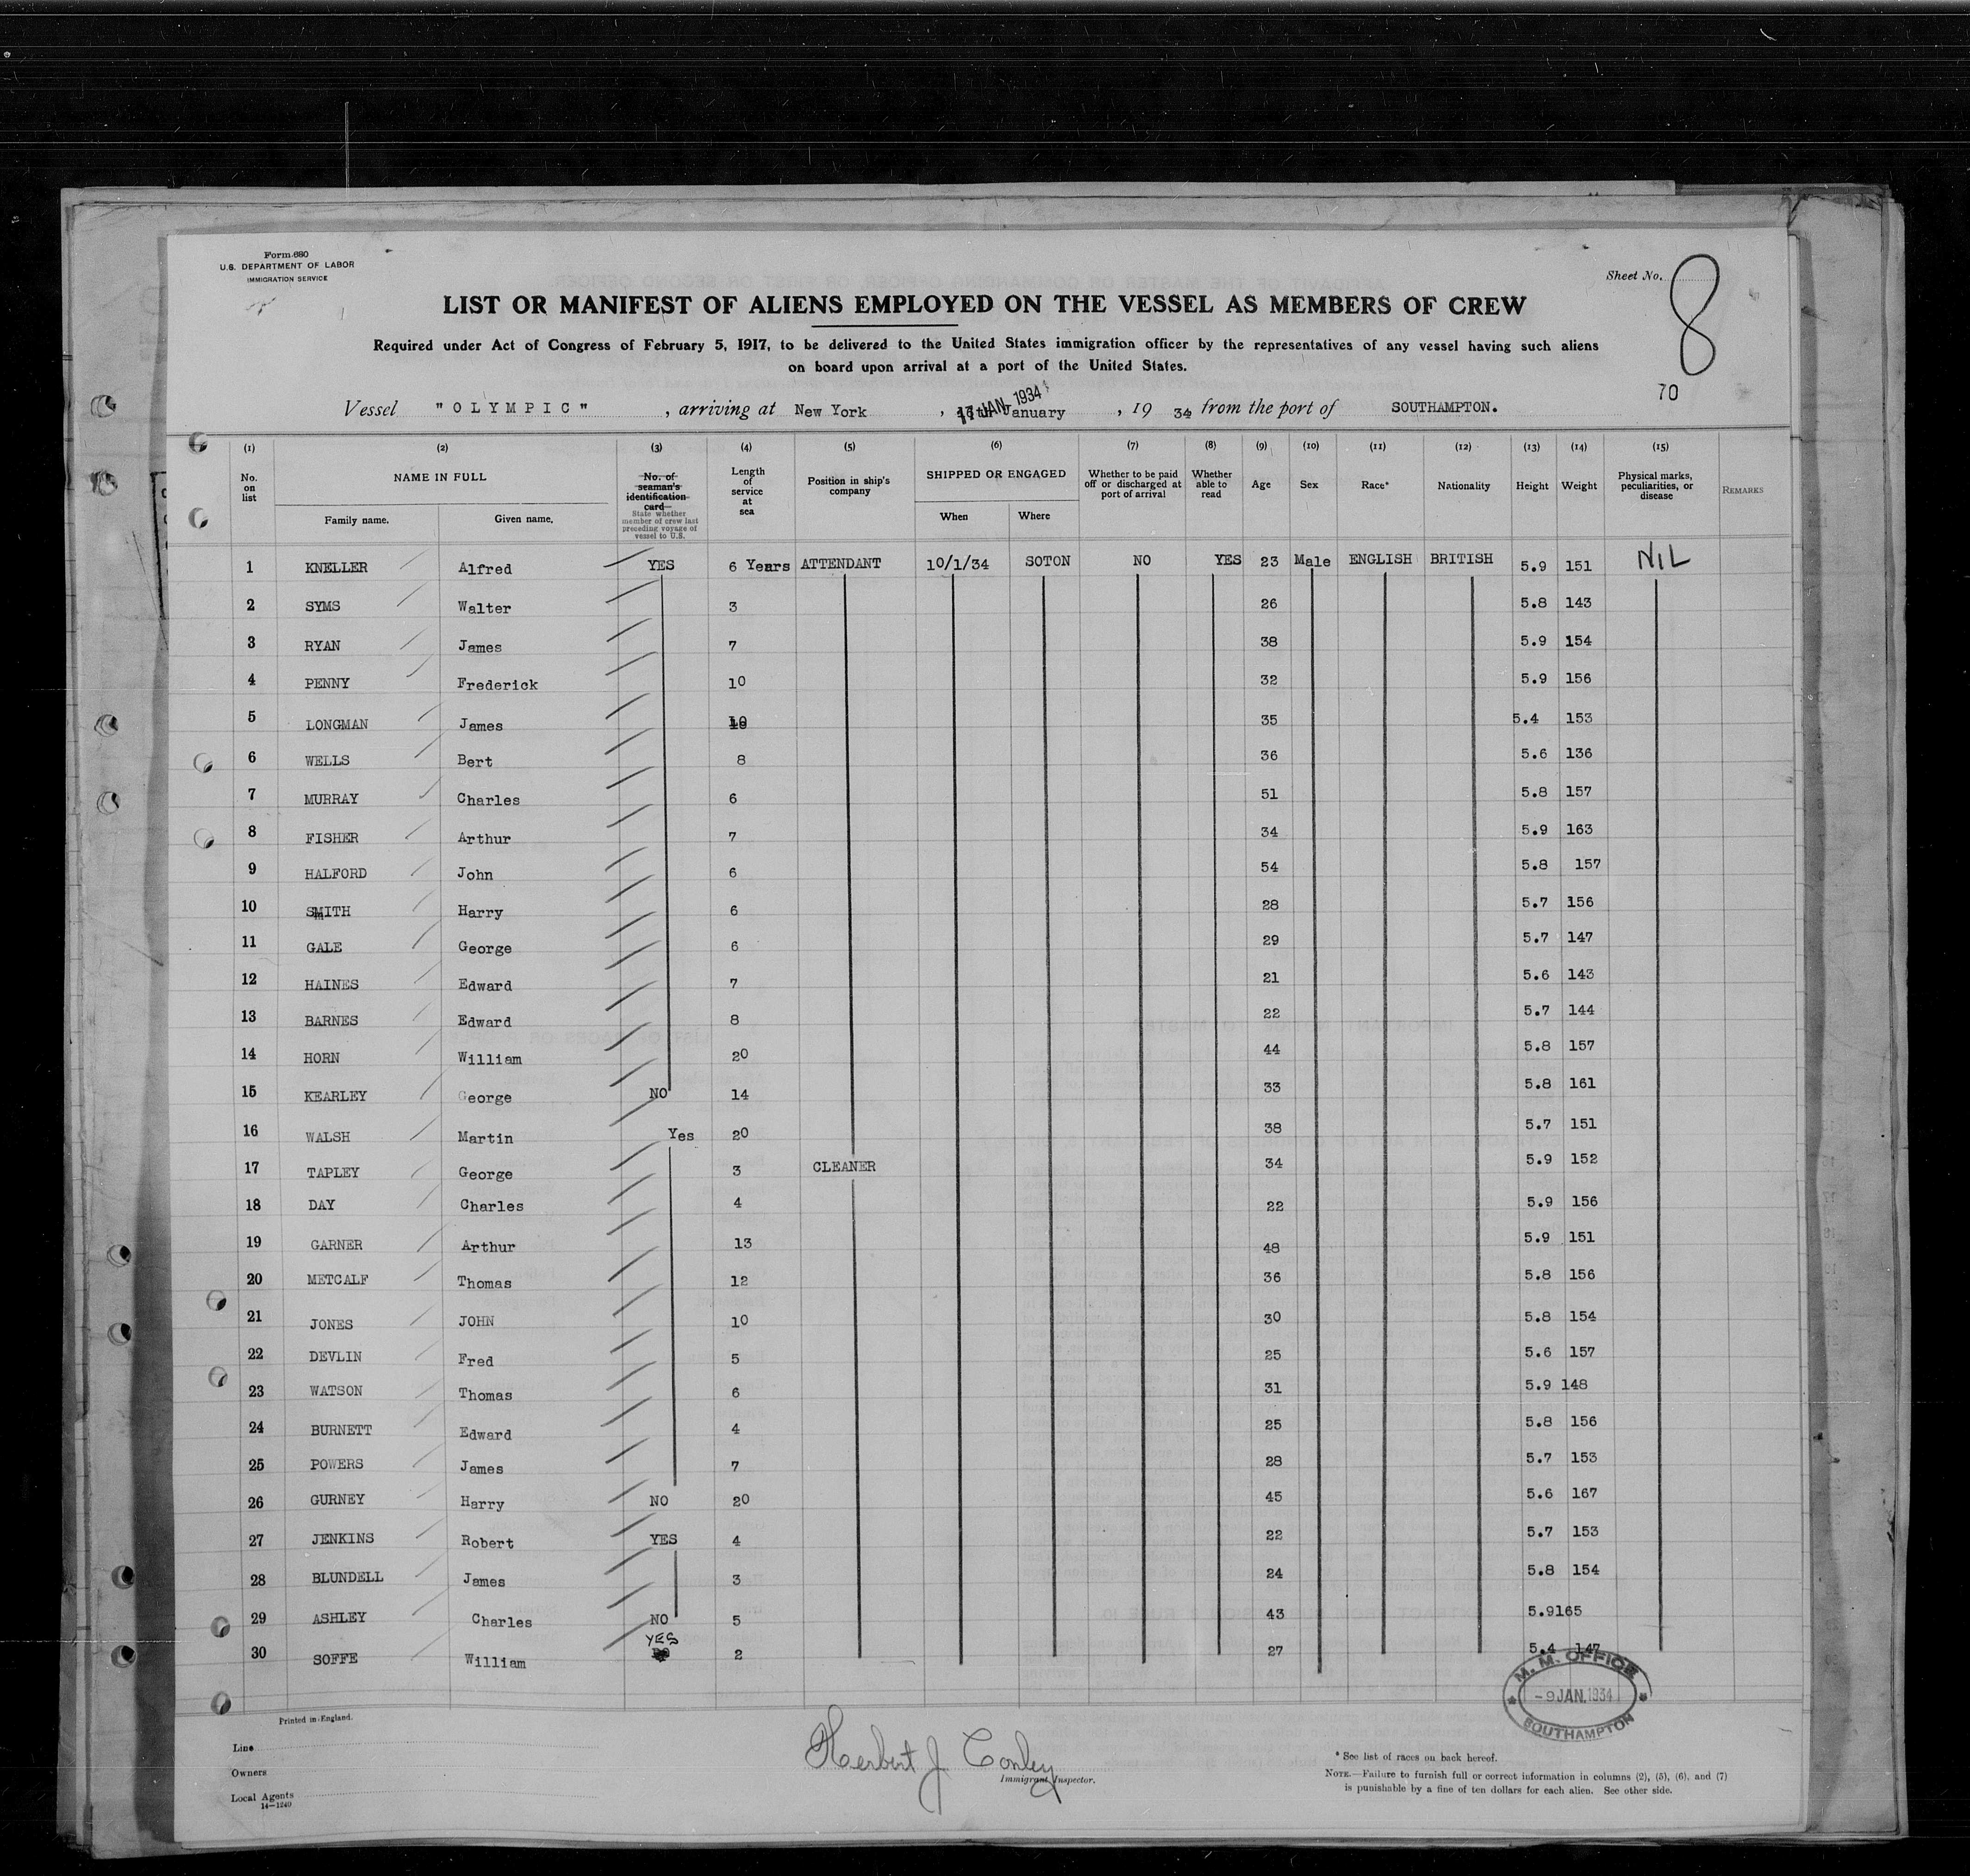 Form 680
U.S. DEPARTMENT OF LABOR
IMMIGRATION SERVICE
Sheet No. 8
LIST OR MANIFEST OF ALIENS EMPLOYED ON THE VESSEL AS MEMBERS OF CREW
Required under Act of Congress of February 5, 1917, to be delivered to the United States immigration officer by the representatives of any vessel having such aliens
on board upon arrival at a port of the United States.
70
Vessel "OLYMPIC", arriving at New York, 17 JAN 1934 January, 19 34 from the port of SOUTHAMPTON.
(1) (2) (3) (4) (5) (6) (7) (8) (9) (10) (11) (12) (13) (14) (15)
No. on list NAME IN FULL Family name. Given name. No. of seaman's identification card— State whether member of crew last preceding voyage of vessel to U.S. Length of service at sea Position in ship's company SHIPPED OR ENGAGED When Where Whether to be paid off or discharged at port of arrival Whether able to read Age Sex Race* Nationality Height Weight Physical marks, peculiarities, or disease REMARKS
1 KNELLER Alfred YES 6 Years ATTENDANT 10/1/34 SOTON NO YES 23 Male ENGLISH BRITISH 5.9 151 NIL
2 SYMS Walter 3 26 5.8 143
3 RYAN James 7 38 5.9 154
4 PENNY Frederick 10 32 5.9 156
5 LONGMAN James 35 5.4 153
6 WELLS Bert 8 36 5.6 136
7 MURRAY Charles 6 51 5.8 157
8 FISHER Arthur 7 34 5.9 163
9 HALFORD John 6 54 5.8 157
10 SMITH Harry 6 28 5.7 156
11 GALE George 6 29 5.7 147
12 HAINES Edward 7 21 5.6 143
13 BARNES Edward 8 22 5.7 144
14 HORN William 20 44 5.8 157
15 KEARLEY George NO 14 33 5.8 161
16 WALSH Martin Yes 20 38 5.7 151
17 TAPLEY George 3 CLEANER 34 5.9 152
18 DAY Charles 4 22 5.9 156
19 GARNER Arthur 13 48 5.9 151
20 METCALF Thomas 12 36 5.8 156
21 JONES JOHN 10 30 5.8 154
22 DEVLIN Fred 5 25 5.6 157
23 WATSON Thomas 6 31 5.9 148
24 BURNETT Edward 4 25 5.8 156
25 POWERS James 7 28 5.7 153
26 GURNEY Harry NO 20 45 5.6 167
27 JENKINS Robert YES 4 22 5.7 153
28 BLUNDELL James 3 24 5.8 154
29 ASHLEY Charles NO 5 43 5.9165
30 SOFFE William YES 2 27 5.4 147
M. M. OFFICE
-9 JAN. 1934
SOUTHAMPTON
Printed in England.
Line
Owners
Local Agents
14—1240
Herbert J Conley
Immigrant Inspector.
* See list of races on back hereof.
NOTE.—Failure to furnish full or correct information in columns (2), (5), (6), and (7)
is punishable by a fine of ten dollars for each alien. See other side.